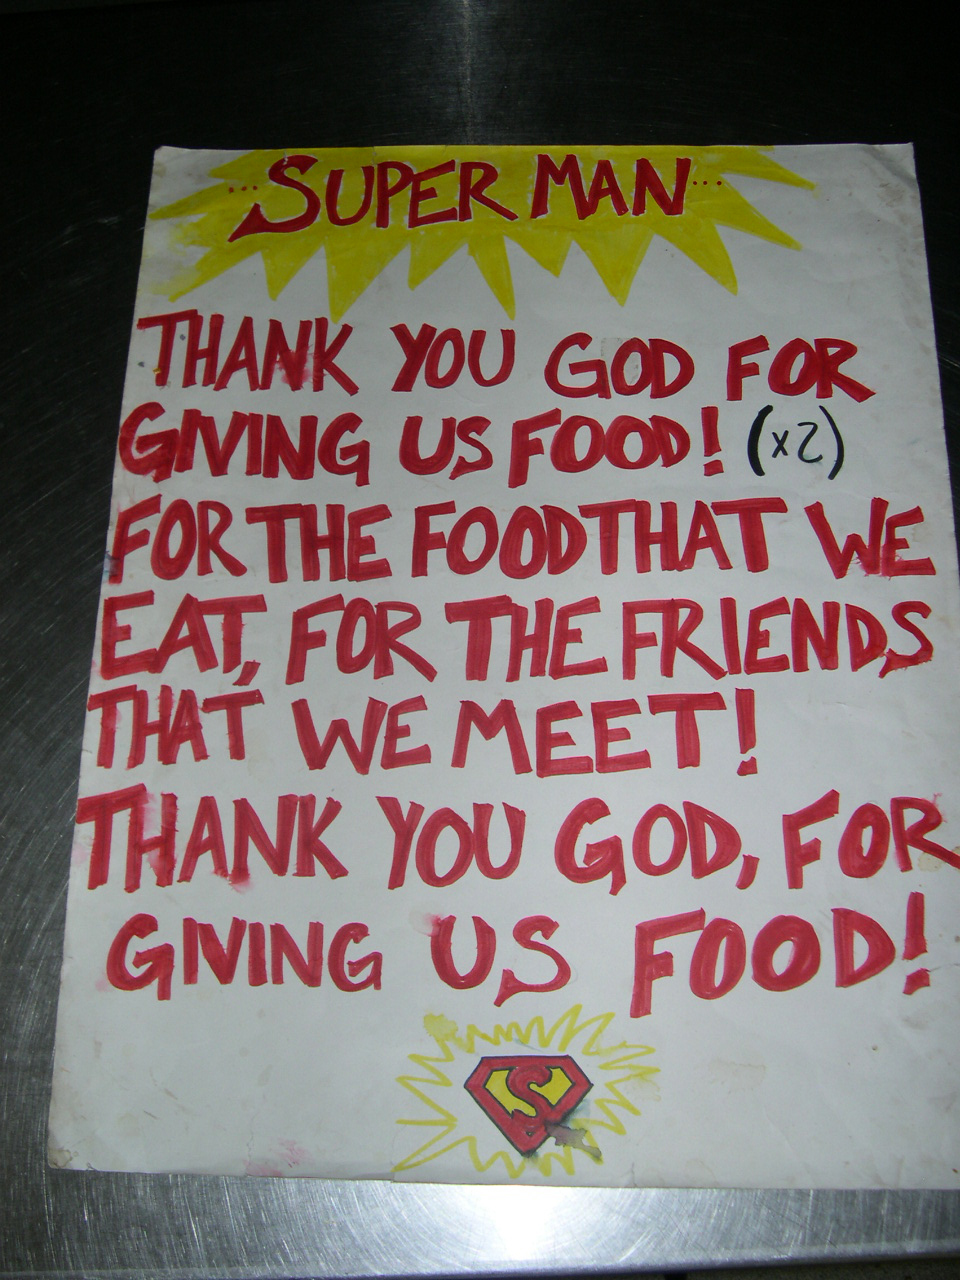 ...SUPER MAN...
THANK YOU GOD FOR
GIVING US FOOD! (x2)
FOR THE FOOD THAT WE
EAT, FOR THE FRIENDS
THAT WE MEET!
THANK YOU GOD, FOR
GIVING US FOOD!
S